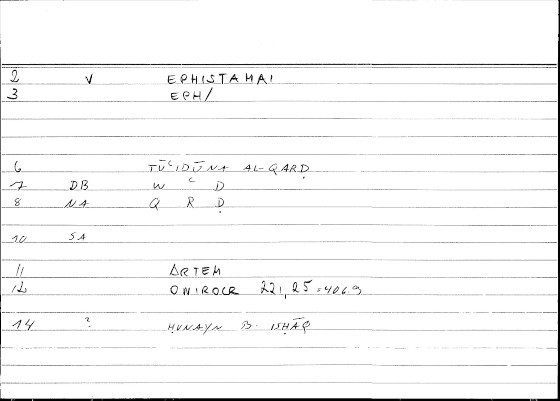 2 V EPHISTAMAI
3 EPH/
6 TŪʿIDŪNA AL-QARḌ
7 DB W ʿ D
8 NA Q R Ḍ
10 SA
11 ARTEM
12 ONIROCR 221,25=406.9
14 ? ḤUNAYN B. ISḤĀQ